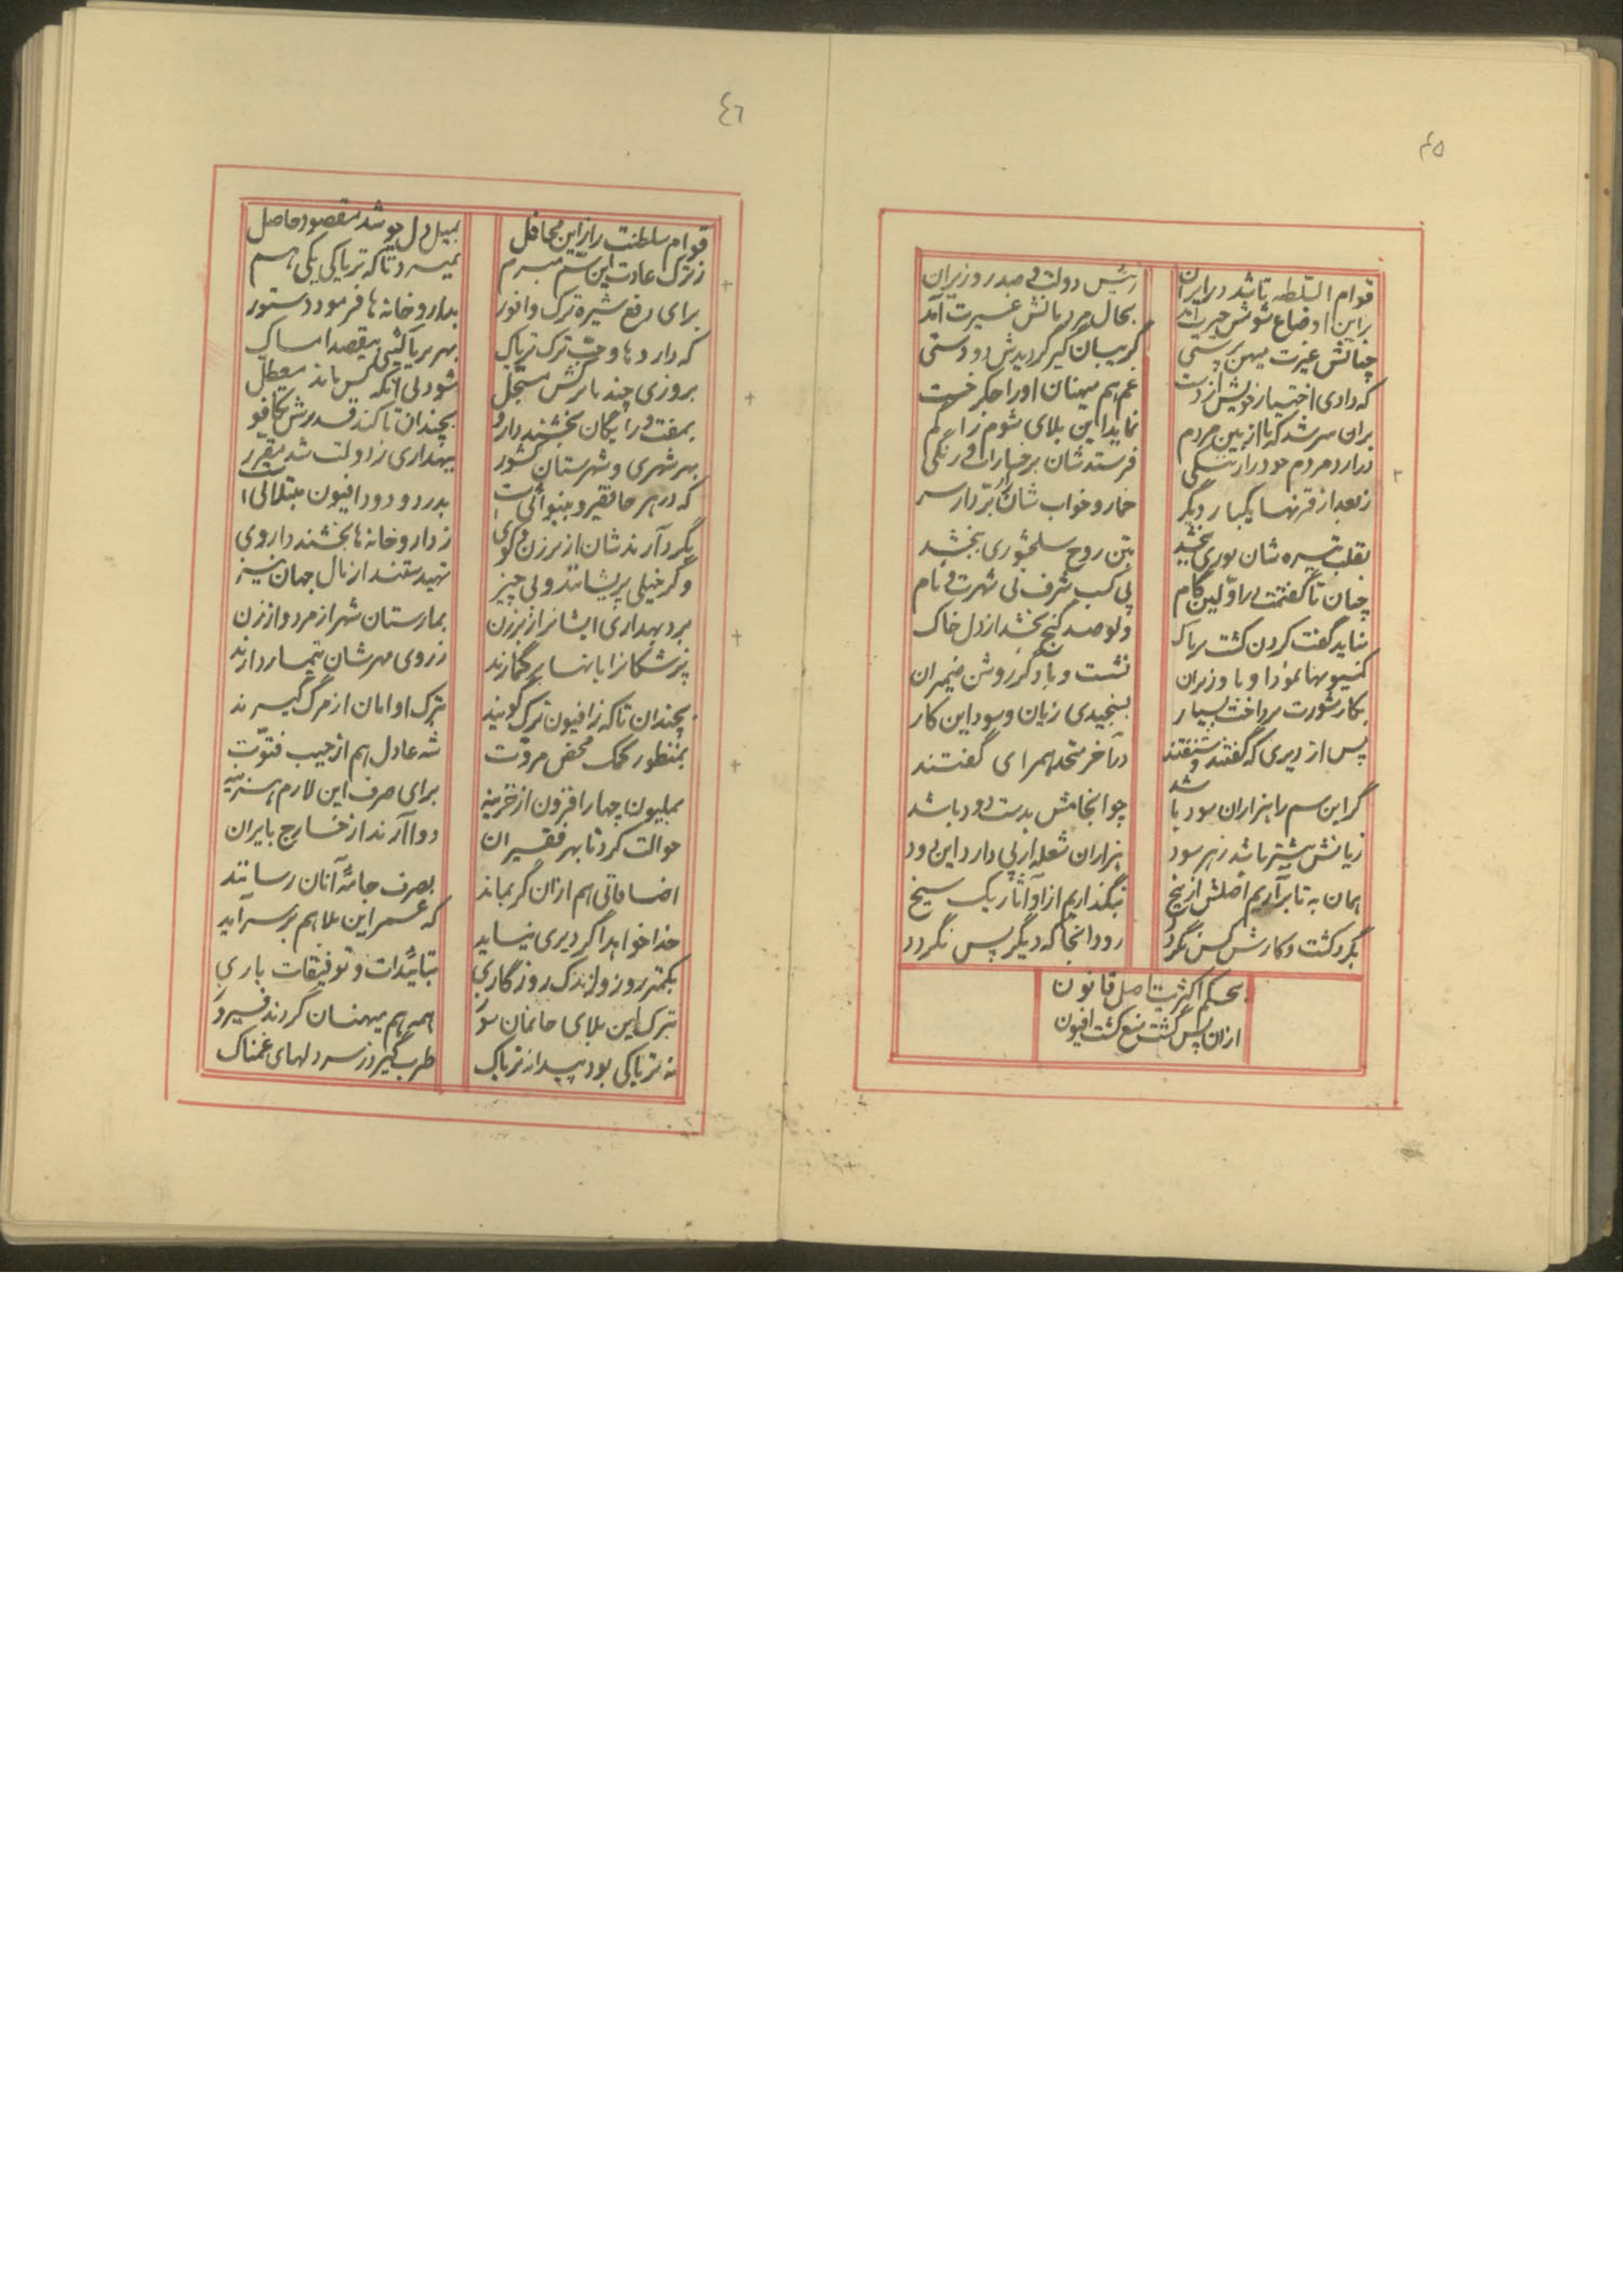 ٤٥
قوام السلطنه تا شد در ایران
رئیس دولت و صدر وزیران
براین اوضاع شومش حیرت آمد
بحال مردمانش عبرت آمد
چنانش غیرت میهن پرستی
گریبان گیر گردیدش دو دستی
که دادی اختیار خویش از دست
غم هم میهنان او را جگر خست
بران سر شد که تا از بین مردم
نماید این بلای شوم را گم
فرستدشان برخساران رنگی
ز بعد از قرنها یکبار دیگر
خمار و خواب شان بردارد از سر
بقلب تیره شان نوری ببخشد
بتن روح سلحشوری ببخشد
چنان تا گفتمت در اولین گام
پی کسب شرف نی شهرت و نام
نباید گفت کردن کشت تریاک
ولو صد گنج بخشد از دل خاک
کمسیونها نمود او با وزیران
نشست و با دگر روشن ضمیران
بکار شورت پرداخت بسیار
بسنجیدی زیان و سود این کار
پس از دیری که گفتند و شنفتند
در آخر متحد همرای گفتند
گر این سم را هزاران سود باشد
چو انجامش بدست دود باشد
زیانش بیشتر باشد ز هر سود
هزاران شعله از پی دارد این دود
همان به تا برآریم اصلش از بیخ
نگذاریم از او آثار یک سیخ
بگرد کشت و کارش کس نگردد
رود آنجا که دیگر پس نگردد
بحکم اکثریت اصل قانون
ازان پس گشت منع کشت افیون
٤٦
قوام سلطنت را زاین محافل
بمیل دل چو شد مقصود حاصل
ز ترک عادت این سم مبرم
نمیرد تا که تریاکی یکی هم
برای رفع شیره ترک وافور
بداروخانه ها فرمود دستور
که دارو ها و حب ترک تریاک
بهر تریاکئی بیقصد امساک
بروزی چند با کرنش مسجل
شود بی آنکه کس ماند معطل
بمفت و رایگان بخشند دارو
بچندان تا کند قدرش تکافو
بهر شهری و شهرستان کشور
بهداری ز دولت شد مقرر
که در هر جا فقیر و بینوائی است
بدرد و دود افیون مبتلائی است
بگرد آرند شان از برزن و کوی
ز داروخانه ها بخشند داروی
وگر خیلی پریشانند و بی چیز
تهیدستند از مال جهان نیز
برد بهداری ایشانرا ز برزن
بمارستان شهر از مرد و از زن
پزشکانرا بانها بر گمارند
ز روی مهرشان تیمار دارند
بچندان تا که ز افیون ترک گویند
بمنظور کمک محض مروت
شه عادل هم از جیب فتوت
بمیلیون چهار افزون از خزینه
برای صرف این لازم هزینه
حوالت کرد تا بهر فقیران
دوا آرند از خارج بایران
اضافاتی هم ازان گر بماند
بصرف جامه آنان رساند
خدا خواهد اگر دیری نپاید
که عمر این بلا هم بر سر آید
بکمتر روز و اندک روزگاری
بتائیدات و توفیقات باری
بترک این بلای خانمان سوز
همه هم میهنان گردند فیروز
نه تریاکی بود پیدا ز تریاک
طرب گیرد ز سر دلهای غمناک